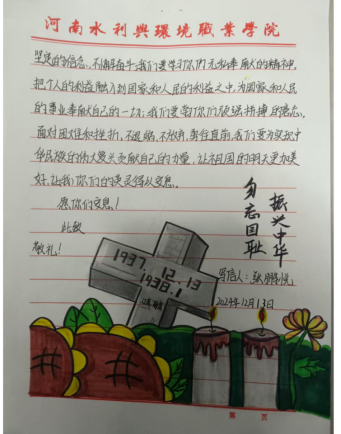 河南水利與環境職業學院
坚定的信念、不懈奋斗;我们要学习你们无私奉献的精神,
把个人的利益融入到国家和人民的利益之中,为国家和人民
的事业奉献自己的一切;我们要学习你们顽强拼搏的意志,
面对困难和挫折,不退缩,不放弃,勇往直前,我们要为实现中
华民族的伟大复兴贡献自己的力量,让祖国的明天更加美
好,让我们你们的英灵得以安息。
愿你们安息!
此致
敬礼!
振兴中华
勿忘国耻
1937.12.13
1938.1
写信人:
2024年12月13日
第 页